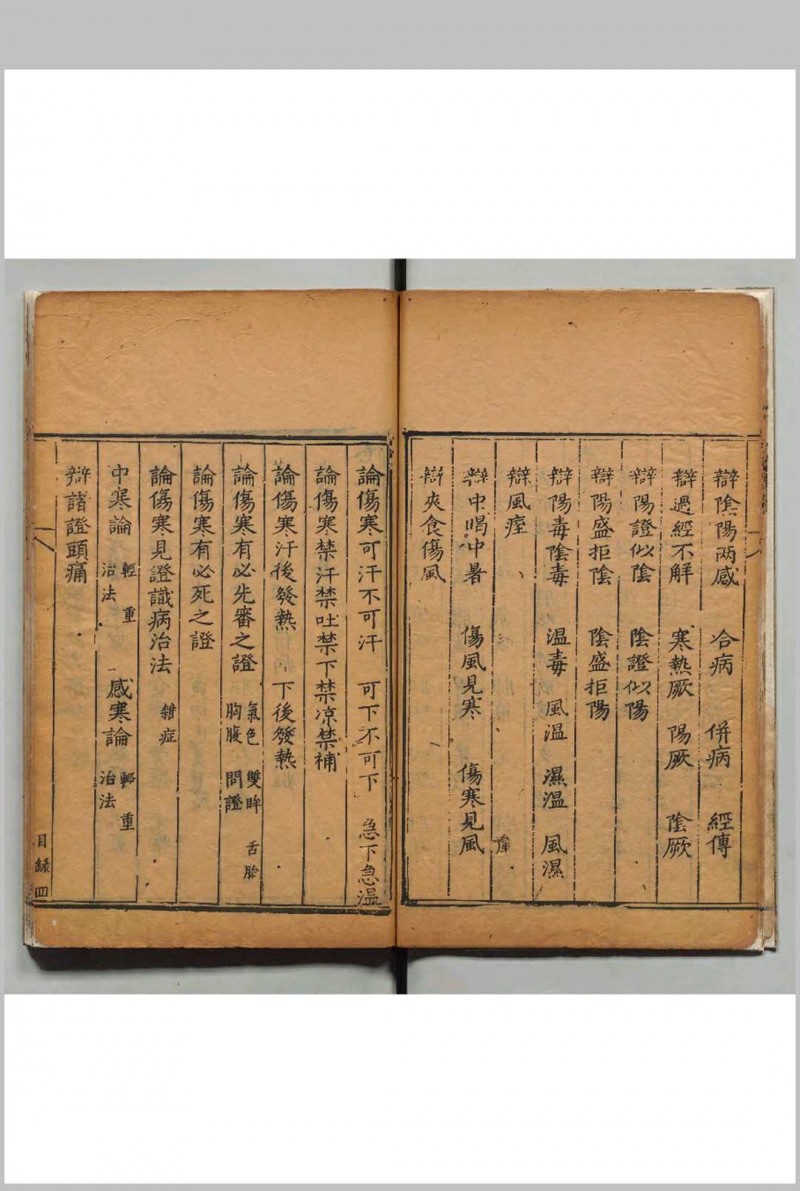 辯陰陽两感 合病 併病 經傳
辯過經不解 寒熱厥 陽厥 陰厥
辯陽證似陰 陰證似陽
辯陽盛拒陰 陰盛拒陽
辯陽毒陰毒 温毒 風温 濕温 風濕
辯風痓
辯中暍中暑 傷風見寒 傷寒見風
辯夾食傷風
論傷寒可汗不可汗 可下不可下 急下急温
論傷寒禁汗禁吐禁下禁凉禁補
論傷寒汗後發熱 下後發熱
論傷寒有必先審之證 氣色 雙眸 舌胎 胸腹 問證
論傷寒有必死之證
論傷寒見證識病治法 雜症
中寒論 輕 重 治法 感寒論 輕 重 治法
辯諸證頭痛
目録四